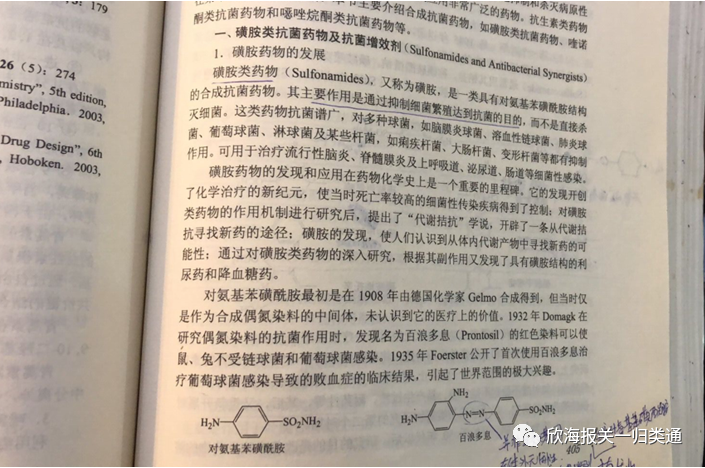 179
26 (5): 274
mistry", 5th edition,
Philadelphia. 2003,
Drug Design", 6th
, Hoboken. 2003,
节主要介绍合成抗菌药物,如磺胺类抗菌药物、喹诺
酮类抗菌药物和噁唑烷酮类抗菌药物等。
一、磺胺类抗菌药物及抗菌增效剂(Sulfonamides and Antibacterial Synergists)
1. 磺胺药物的发展
磺胺类药物(Sulfonamides),又称为磺胺,是一类具有对氨基苯磺酰胺结构
的合成抗菌药物。其主要作用是通过抑制细菌繁殖达到抗菌的目的,而不是直接杀
灭细菌。这类药物抗菌谱广,对多种球菌,如脑膜炎球菌、溶血性链球菌、肺炎球
菌、葡萄球菌、淋球菌及某些杆菌,如痢疾杆菌、大肠杆菌、变形杆菌等都有抑制
作用。可用于治疗流行性脑炎、脊髓膜炎及上呼吸道、泌尿道、肠道等细菌性感染。
磺胺药物的发现和应用在药物化学史上是一个重要的里程碑,它的发现开创
了化学治疗的新纪元,使当时死亡率较高的细菌性传染疾病得到了控制;对磺胺
类药物的作用机制进行研究后,提出了“代谢拮抗”学说,开辟了一条从代谢拮
抗寻找新药的途径;磺胺的发现,使人们认识到从体内代谢产物中寻找新药的可
能性;通过对磺胺类药物的深入研究,根据其副作用又发现了具有磺胺结构的利
尿药和降血糖药。
对氨基苯磺酰胺最初是在 1908 年由德国化学家 Gelmo 合成得到,但当时仅
是作为合成偶氮染料的中间体,未认识到它的医疗上的价值。1932 年 Domagk 在
研究偶氮染料的抗菌作用时,发现名为百浪多息(Prontosil)的红色染料可以使
鼠、兔不受链球菌和葡萄球菌感染。1935 年 Foerster 公开了首次使用百浪多息治
疗葡萄球菌感染导致的败血症的临床结果,引起了世界范围的极大兴趣。
H₂N SO₂NH₂
对氨基苯磺酰胺
NH₂
H₂N N=N SO₂NH₂
百浪多息
405
欣海报关一归类通